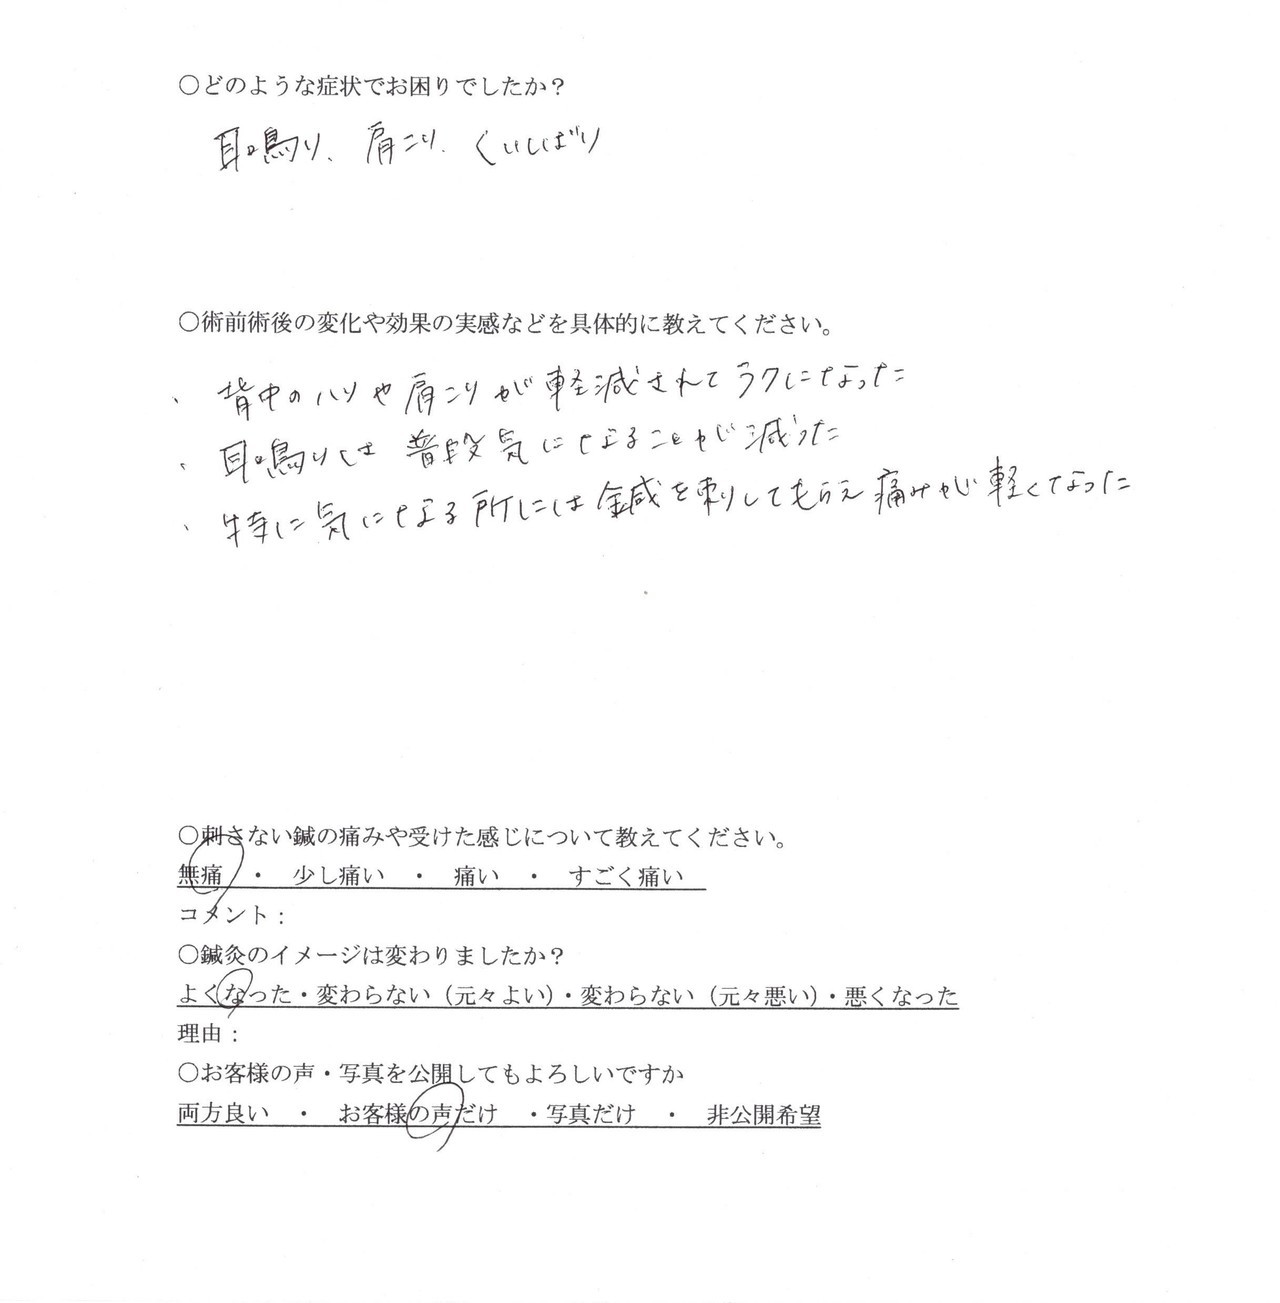 ○どのような症状でお困りでしたか？
耳鳴り、肩こり、くいしばり
○術前術後の変化や効果の実感などを具体的に教えてください。
・背中のハリや肩こりが軽減されてラクになった
・耳鳴りは普段気になることが減った
・特に気になる所には鍼を刺してもらえ痛みが軽くなった
○刺さない鍼の痛みや受けた感じについて教えてください。
無痛　・　少し痛い　・　痛い　・　すごく痛い
コメント：
○鍼灸のイメージは変わりましたか？
よくなった・変わらない（元々よい）・変わらない（元々悪い）・悪くなった
理由：
○お客様の声・写真を公開してもよろしいですか
両方良い　・　お客様の声だけ　・写真だけ　・　非公開希望